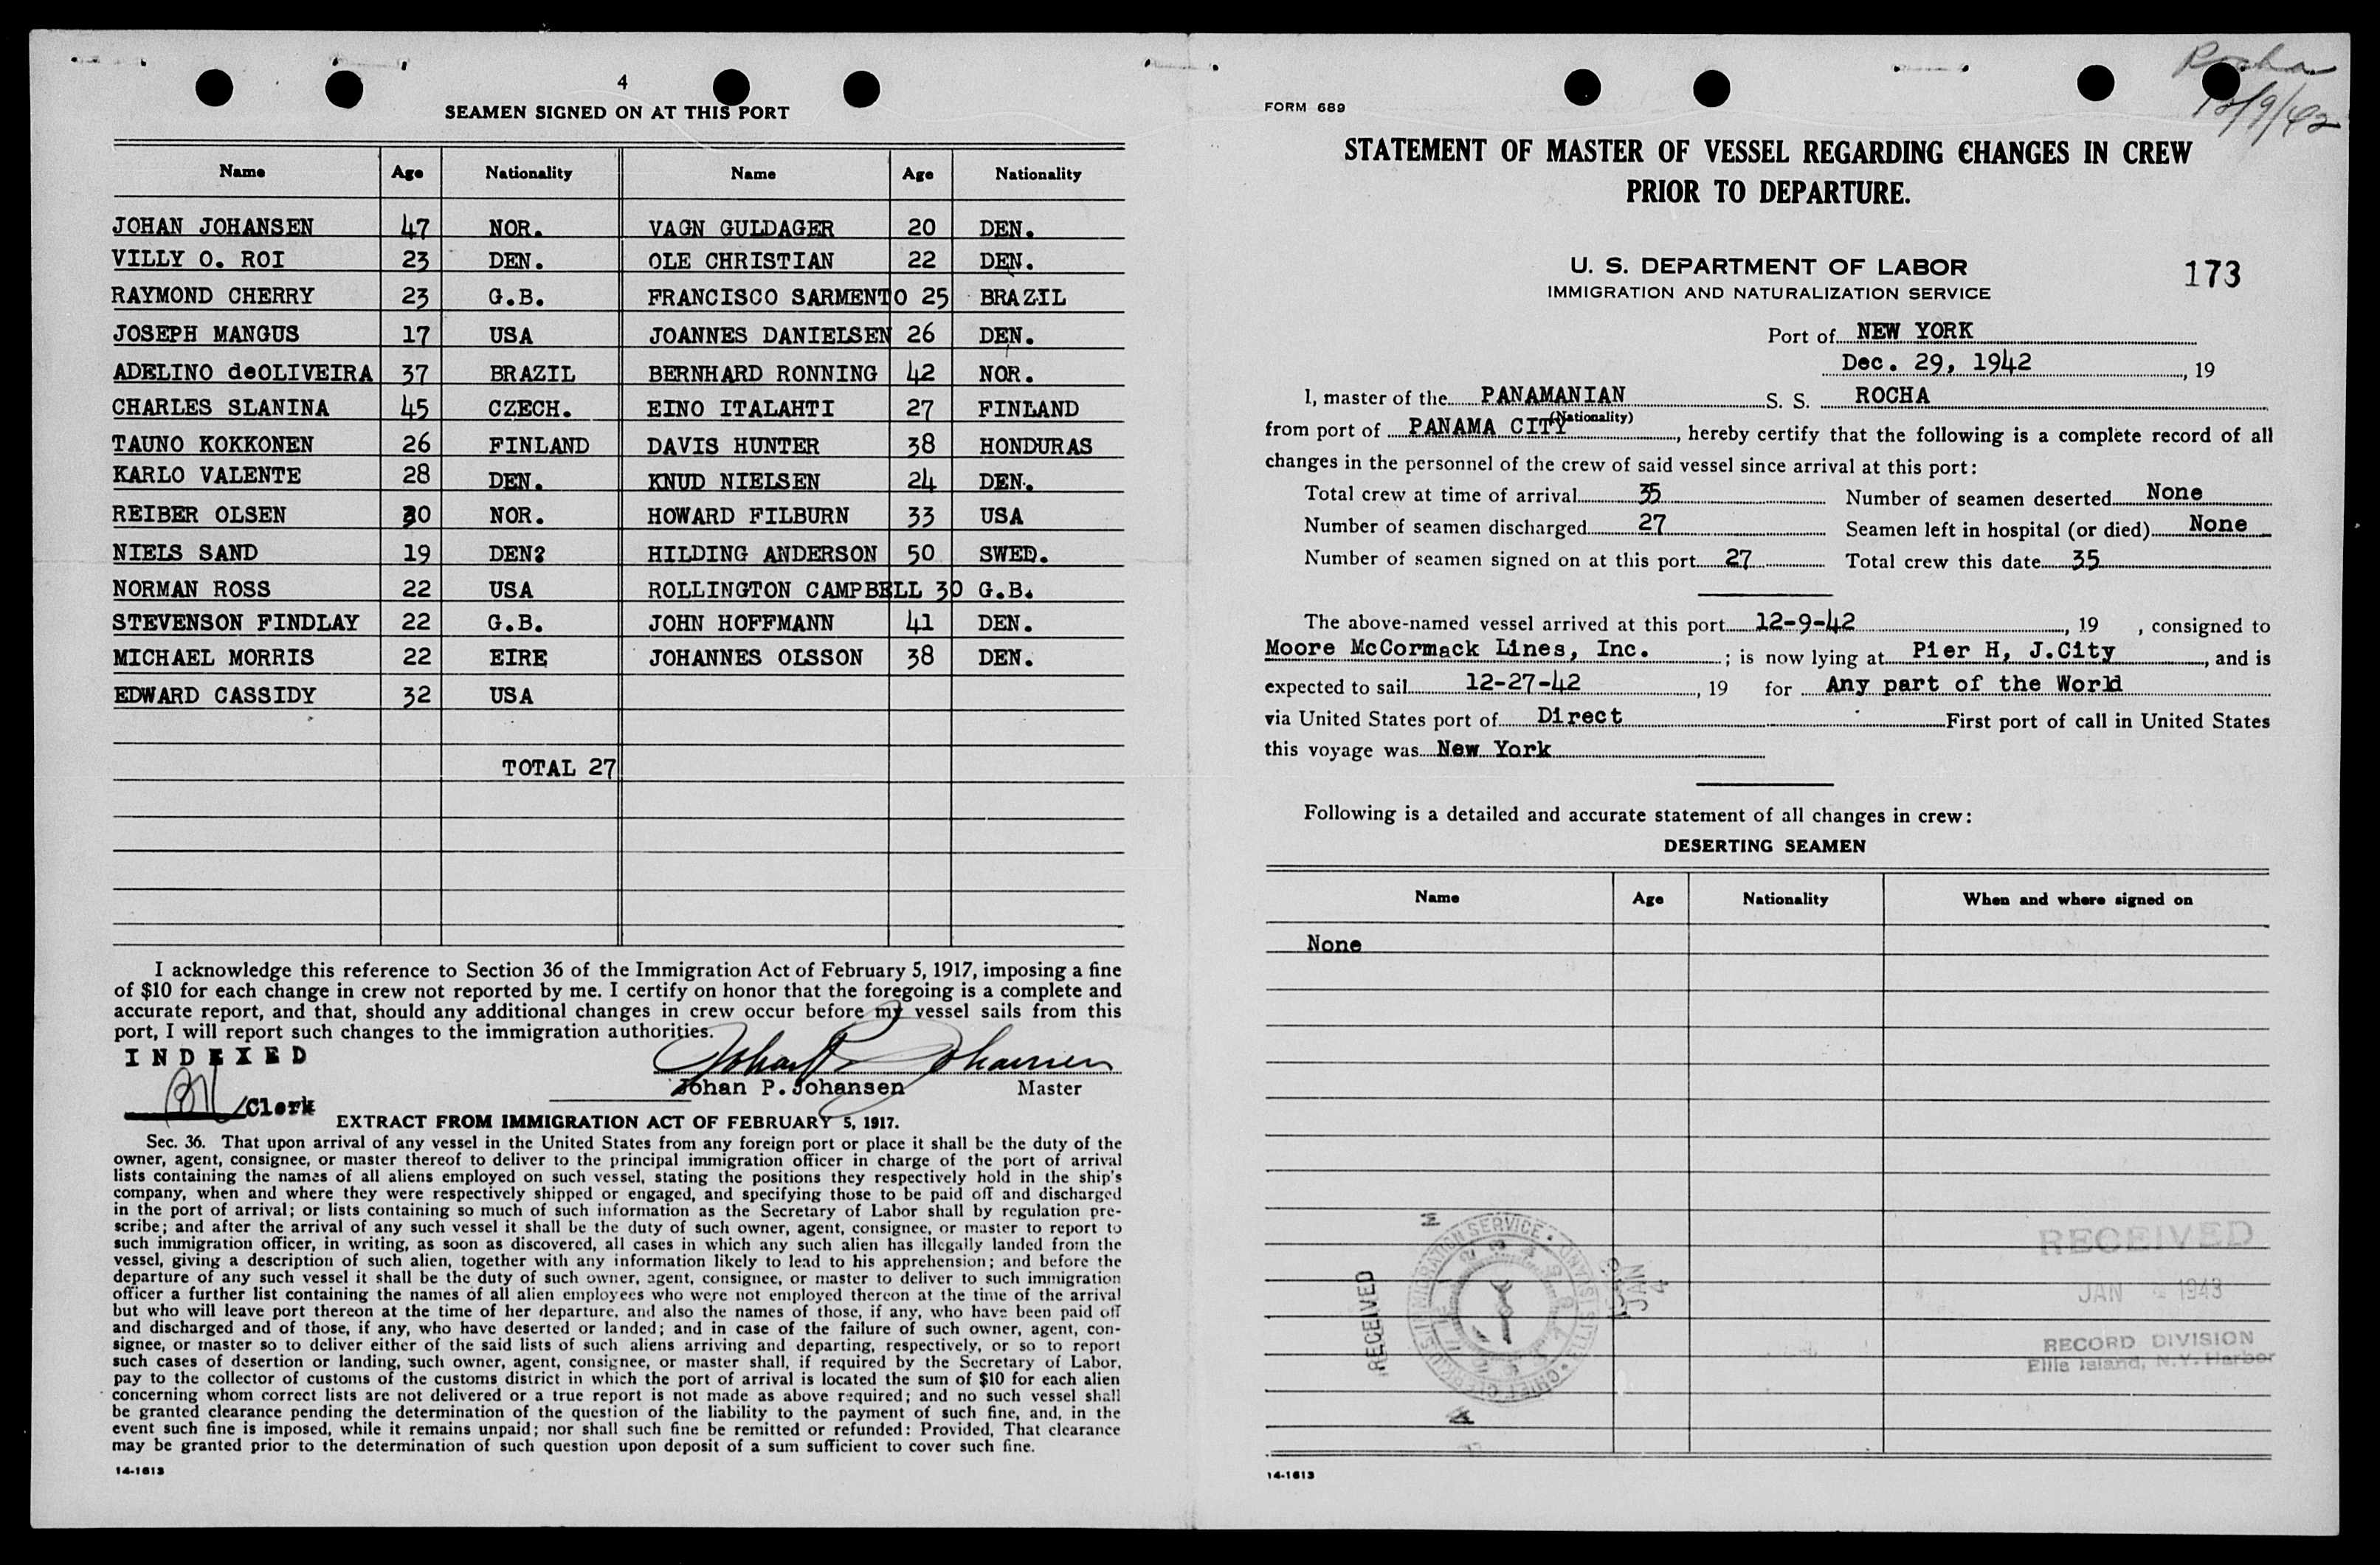 4
SEAMEN SIGNED ON AT THIS PORT
Name Age Nationality Name Age Nationality
JOHAN JOHANSEN 47 NOR. VAGN GULDAGER 20 DEN.
VILLY O. ROI 23 DEN. OLE CHRISTIAN 22 DEN.
RAYMOND CHERRY 23 G.B. FRANCISCO SARMENTO 25 BRAZIL
JOSEPH MANGUS 17 USA JOANNES DANIELSEN 26 DEN.
ADELINO deOLIVEIRA 37 BRAZIL BERNHARD RONNING 42 NOR.
CHARLES SLANINA 45 CZECH. EINO ITALAHTI 27 FINLAND
TAUNO KOKKONEN 26 FINLAND DAVIS HUNTER 38 HONDURAS
KARLO VALENTE 28 DEN. KNUD NIELSEN 24 DEN.
REIBER OLSEN 30 NOR. HOWARD FILBURN 33 USA
NIELS SAND 19 DEN? HILDING ANDERSON 50 SWED.
NORMAN ROSS 22 USA ROLLINGTON CAMPBELL 30 G.B.
STEVENSON FINDLAY 22 G.B. JOHN HOFFMANN 41 DEN.
MICHAEL MORRIS 22 EIRE JOHANNES OLSSON 38 DEN.
EDWARD CASSIDY 32 USA
TOTAL 27
I acknowledge this reference to Section 36 of the Immigration Act of February 5, 1917, imposing a fine
of $10 for each change in crew not reported by me. I certify on honor that the foregoing is a complete and
accurate report, and that, should any additional changes in crew occur before my vessel sails from this
port, I will report such changes to the immigration authorities.
INDEXED
Johan P. Johansen
Johan P. Johansen Master
Clerk
EXTRACT FROM IMMIGRATION ACT OF FEBRUARY 5, 1917.
Sec. 36. That upon arrival of any vessel in the United States from any foreign port or place it shall be the duty of the
owner, agent, consignee, or master thereof to deliver to the principal immigration officer in charge of the port of arrival
lists containing the names of all aliens employed on such vessel, stating the positions they respectively hold in the ship's
company, when and where they were respectively shipped or engaged, and specifying those to be paid off and discharged
in the port of arrival; or lists containing so much of such information as the Secretary of Labor shall by regulation pre-
scribe; and after the arrival of any such vessel it shall be the duty of such owner, agent, consignee, or master to report to
such immigration officer, in writing, as soon as discovered, all cases in which any such alien has illegally landed from the
vessel, giving a description of such alien, together with any information likely to lead to his apprehension; and before the
departure of any such vessel it shall be the duty of such owner, agent, consignee, or master to deliver to such immigration
officer a further list containing the names of all alien employees who were not employed thereon at the time of the arrival
but who will leave port thereon at the time of her departure, and also the names of those, if any, who have been paid off
and discharged and of those, if any, who have deserted or landed; and in case of the failure of such owner, agent, con-
signee, or master so to deliver either of the said lists of such aliens arriving and departing, respectively, or so to report
such cases of desertion or landing, such owner, agent, consignee, or master shall, if required by the Secretary of Labor,
pay to the collector of customs of the customs district in which the port of arrival is located the sum of $10 for each alien
concerning whom correct lists are not delivered or a true report is not made as above required; and no such vessel shall
be granted clearance pending the determination of the question of the liability to the payment of such fine, and, in the
event such fine is imposed, while it remains unpaid; nor shall such fine be remitted or refunded: Provided, That clearance
may be granted prior to the determination of such question upon deposit of a sum sufficient to cover such fine.
14-1613
Rocha
12/9/42
FORM 689
STATEMENT OF MASTER OF VESSEL REGARDING CHANGES IN CREW
PRIOR TO DEPARTURE.
U. S. DEPARTMENT OF LABOR
IMMIGRATION AND NATURALIZATION SERVICE
173
Port of NEW YORK
Dec. 29, 1942, 19
I, master of the PANAMANIAN S. S. ROCHA
(Nationality)
from port of PANAMA CITY, hereby certify that the following is a complete record of all
changes in the personnel of the crew of said vessel since arrival at this port:
Total crew at time of arrival 35 Number of seamen deserted None
Number of seamen discharged 27 Seamen left in hospital (or died) None
Number of seamen signed on at this port 27 Total crew this date 35
The above-named vessel arrived at this port 12-9-42, 19 , consigned to
Moore McCormack Lines, Inc. ; is now lying at Pier H, J.City, and is
expected to sail 12-27-42, 19 for Any part of the World
via United States port of Direct First port of call in United States
this voyage was New York
Following is a detailed and accurate statement of all changes in crew:
DESERTING SEAMEN
Name Age Nationality When and where signed on
None
RECEIVED
JAN 1943
RECORD DIVISION
Ellis Island, N.Y. Harbor
RECEIVED
JAN 4
14-1613